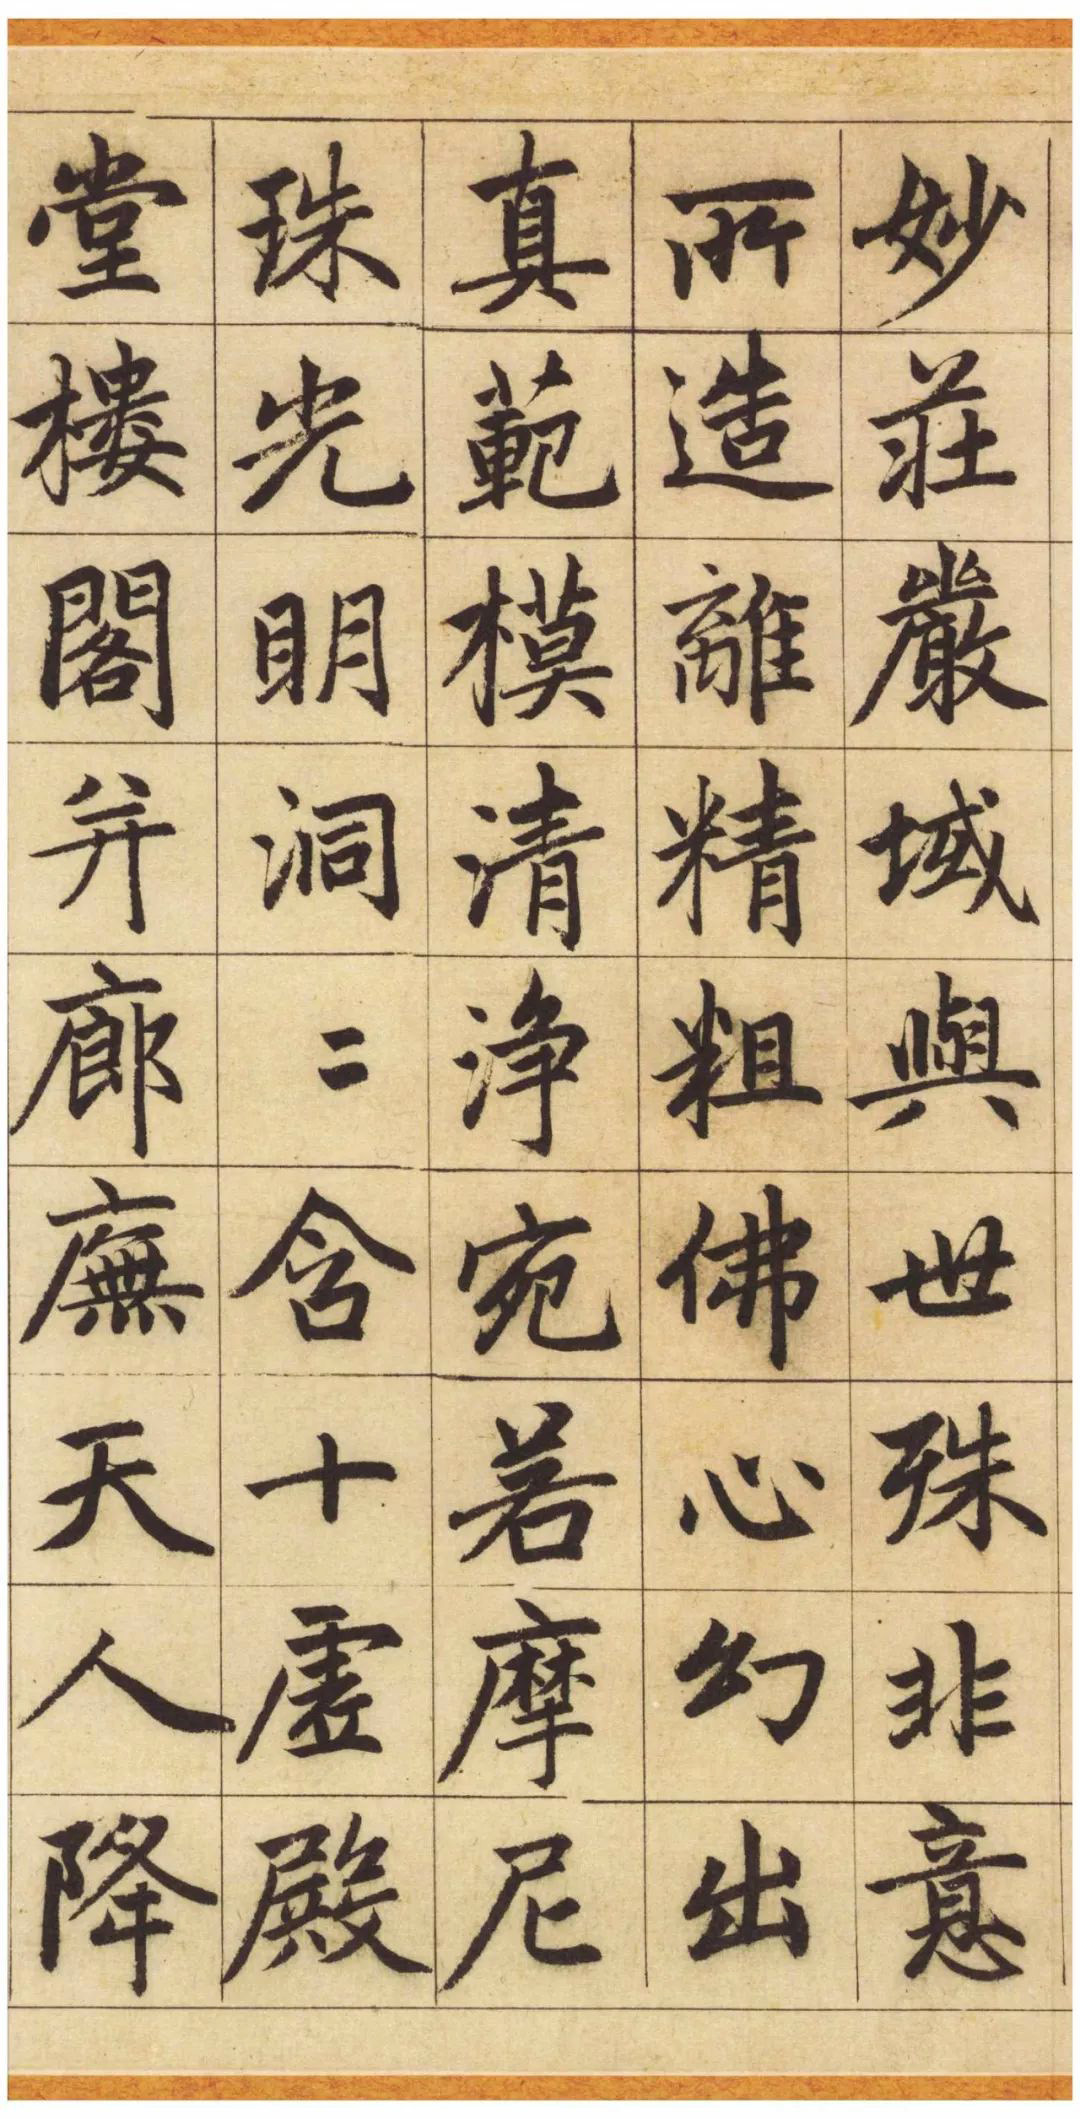 妙莊嚴域與世殊非意
所造離精粗佛心幻出
真範模清浄宛若摩尼
珠光明洞二含十虛殿
堂樓閣并廊廡天人降